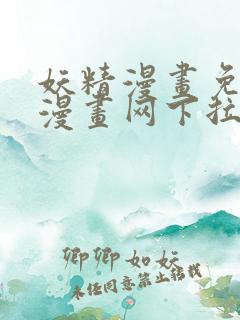 妖精漫畫免
漫畫网下拉
卿卿如妖
未经同意禁止转载